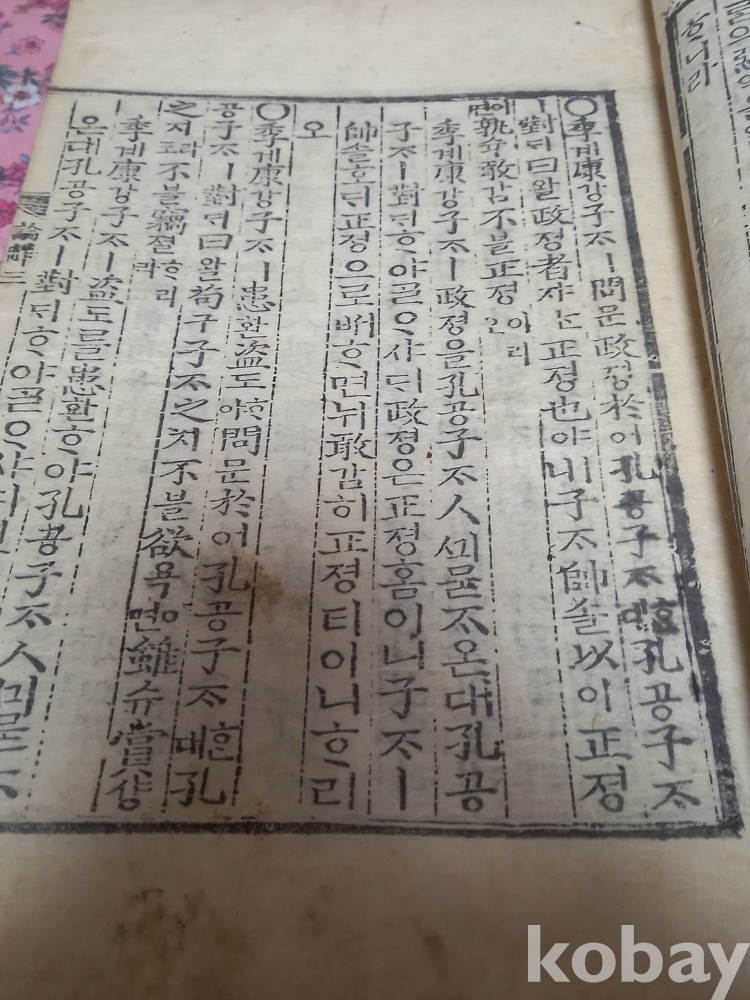 ᄒᆞ니라
○季계康강子ᄌᆞㅣ問문政정於어孔공子ᄌᆞᄒᆞᆫ대孔공子ᄌᆞ
ㅣ對ᄃᆡ曰왈政정者쟈ᄂᆞᆫ正정也야ㅣ니子ᄌᆞ帥솔以이正정
이면孰슉敢감不블正정이리오
季계康강子ᄌᆞㅣ政정을孔공子ᄌᆞㅅ긔묻ᄌᆞ온대孔공
子ᄌᆞㅣ對ᄃᆡᄒᆞ야ᄀᆞᆯᄋᆞ샤ᄃᆡ政정은正정홈이니子ᄌᆞㅣ
帥솔호ᄃᆡ正정으로ᄡᅥᄒᆞ면뉘敢감히正정티아니ᄒᆞ리
오
○季계康강子ᄌᆞㅣ患환盜도ᄒᆞ야問문於어孔공子ᄌᆞᄒᆞᆫ대孔
공子ᄌᆞㅣ對ᄃᆡ曰왈苟구子ᄌᆞ之지不블欲욕이면雖슈賞샹
之지라도不블竊졀ᄒᆞ리라
季계康강子ᄌᆞㅣ盜도를患환ᄒᆞ야孔공子ᄌᆞㅅ긔묻ᄌᆞ
온대孔공子ᄌᆞㅣ對ᄃᆡᄒᆞ야ᄀᆞᆯᄋᆞ샤
論解三
kobay